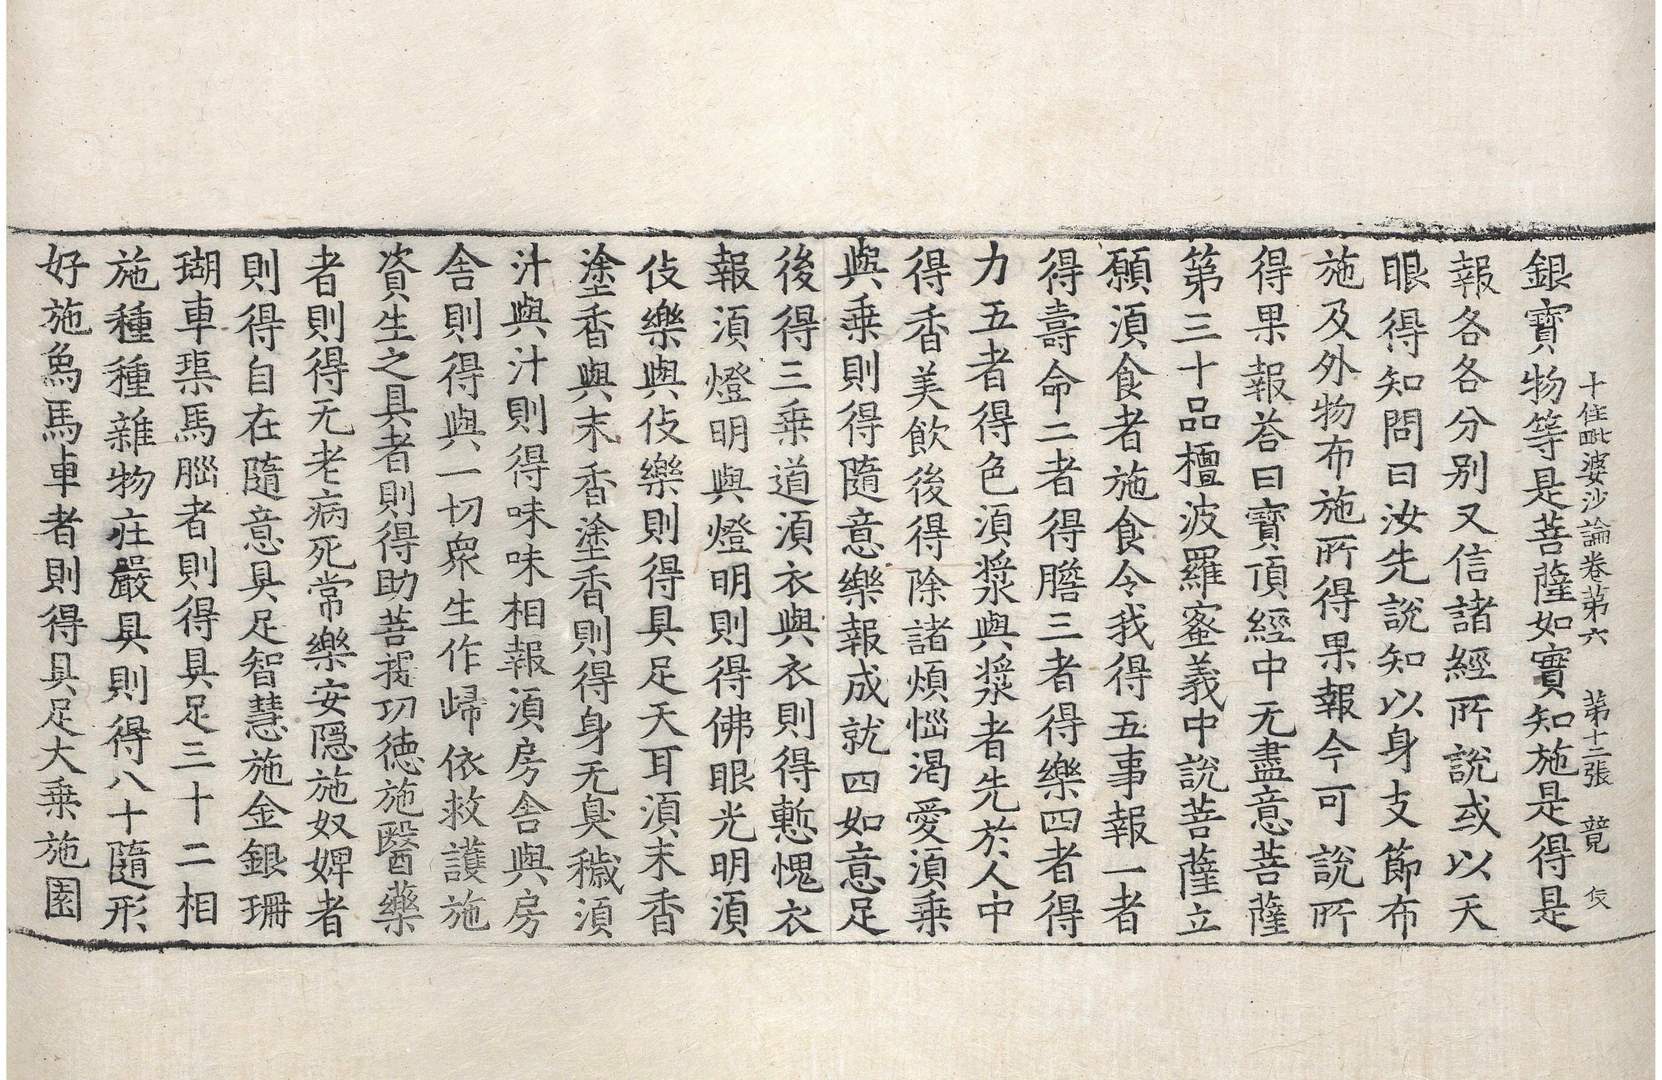 十住毗婆沙論卷第六　第十二張　竟
銀寶物等是菩薩如實知施是得是
報各各分別又信諸經所說或以天
眼得知問曰汝先說知以身支節布
施及外物布施所得果報今可說所
得果報荅曰寶頂經中无盡意菩薩
第三十品檀波羅蜜義中說菩薩立
願湏食者施食令我得五事報一者
得壽命二者得膽三者得樂四者得
力五者得色湏漿與漿者先於人中
得香美飲後得除諸煩惱渴愛湏乘
與乗則得隨意樂報成就四如意足
後得三乗道湏衣與衣則得慙愧衣
報湏燈明與燈明則得佛眼光明湏
伎樂與伎樂則得具足天耳湏末香
塗香與末香塗香則得身无臭穢湏
汁與汁則得味味相報湏房舎與房
舎則得與一切衆生作歸依救護施
資生之具者則得助菩提功德施醫藥
者則得无老病死常樂安隱施奴婢者
則得自在隨意具足智慧施金銀珊
瑚車𤦲馬腦者則得具足三十二相
施種種雜物莊嚴具則得八十隨形
好施象馬車者則得具足大乗施園